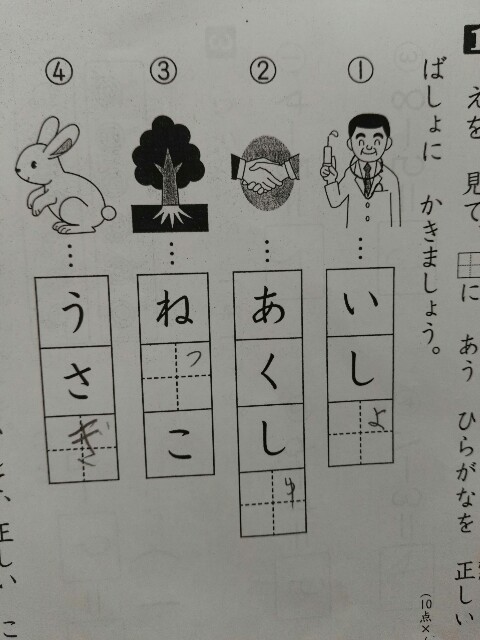 1
えを 見て、 に あう ひらがなを 正しい
ばしょに かきましょう。
(10点×
① … いしょ
② … あくしゅ
③ … ねっこ
④ … うさぎ
正しい こ